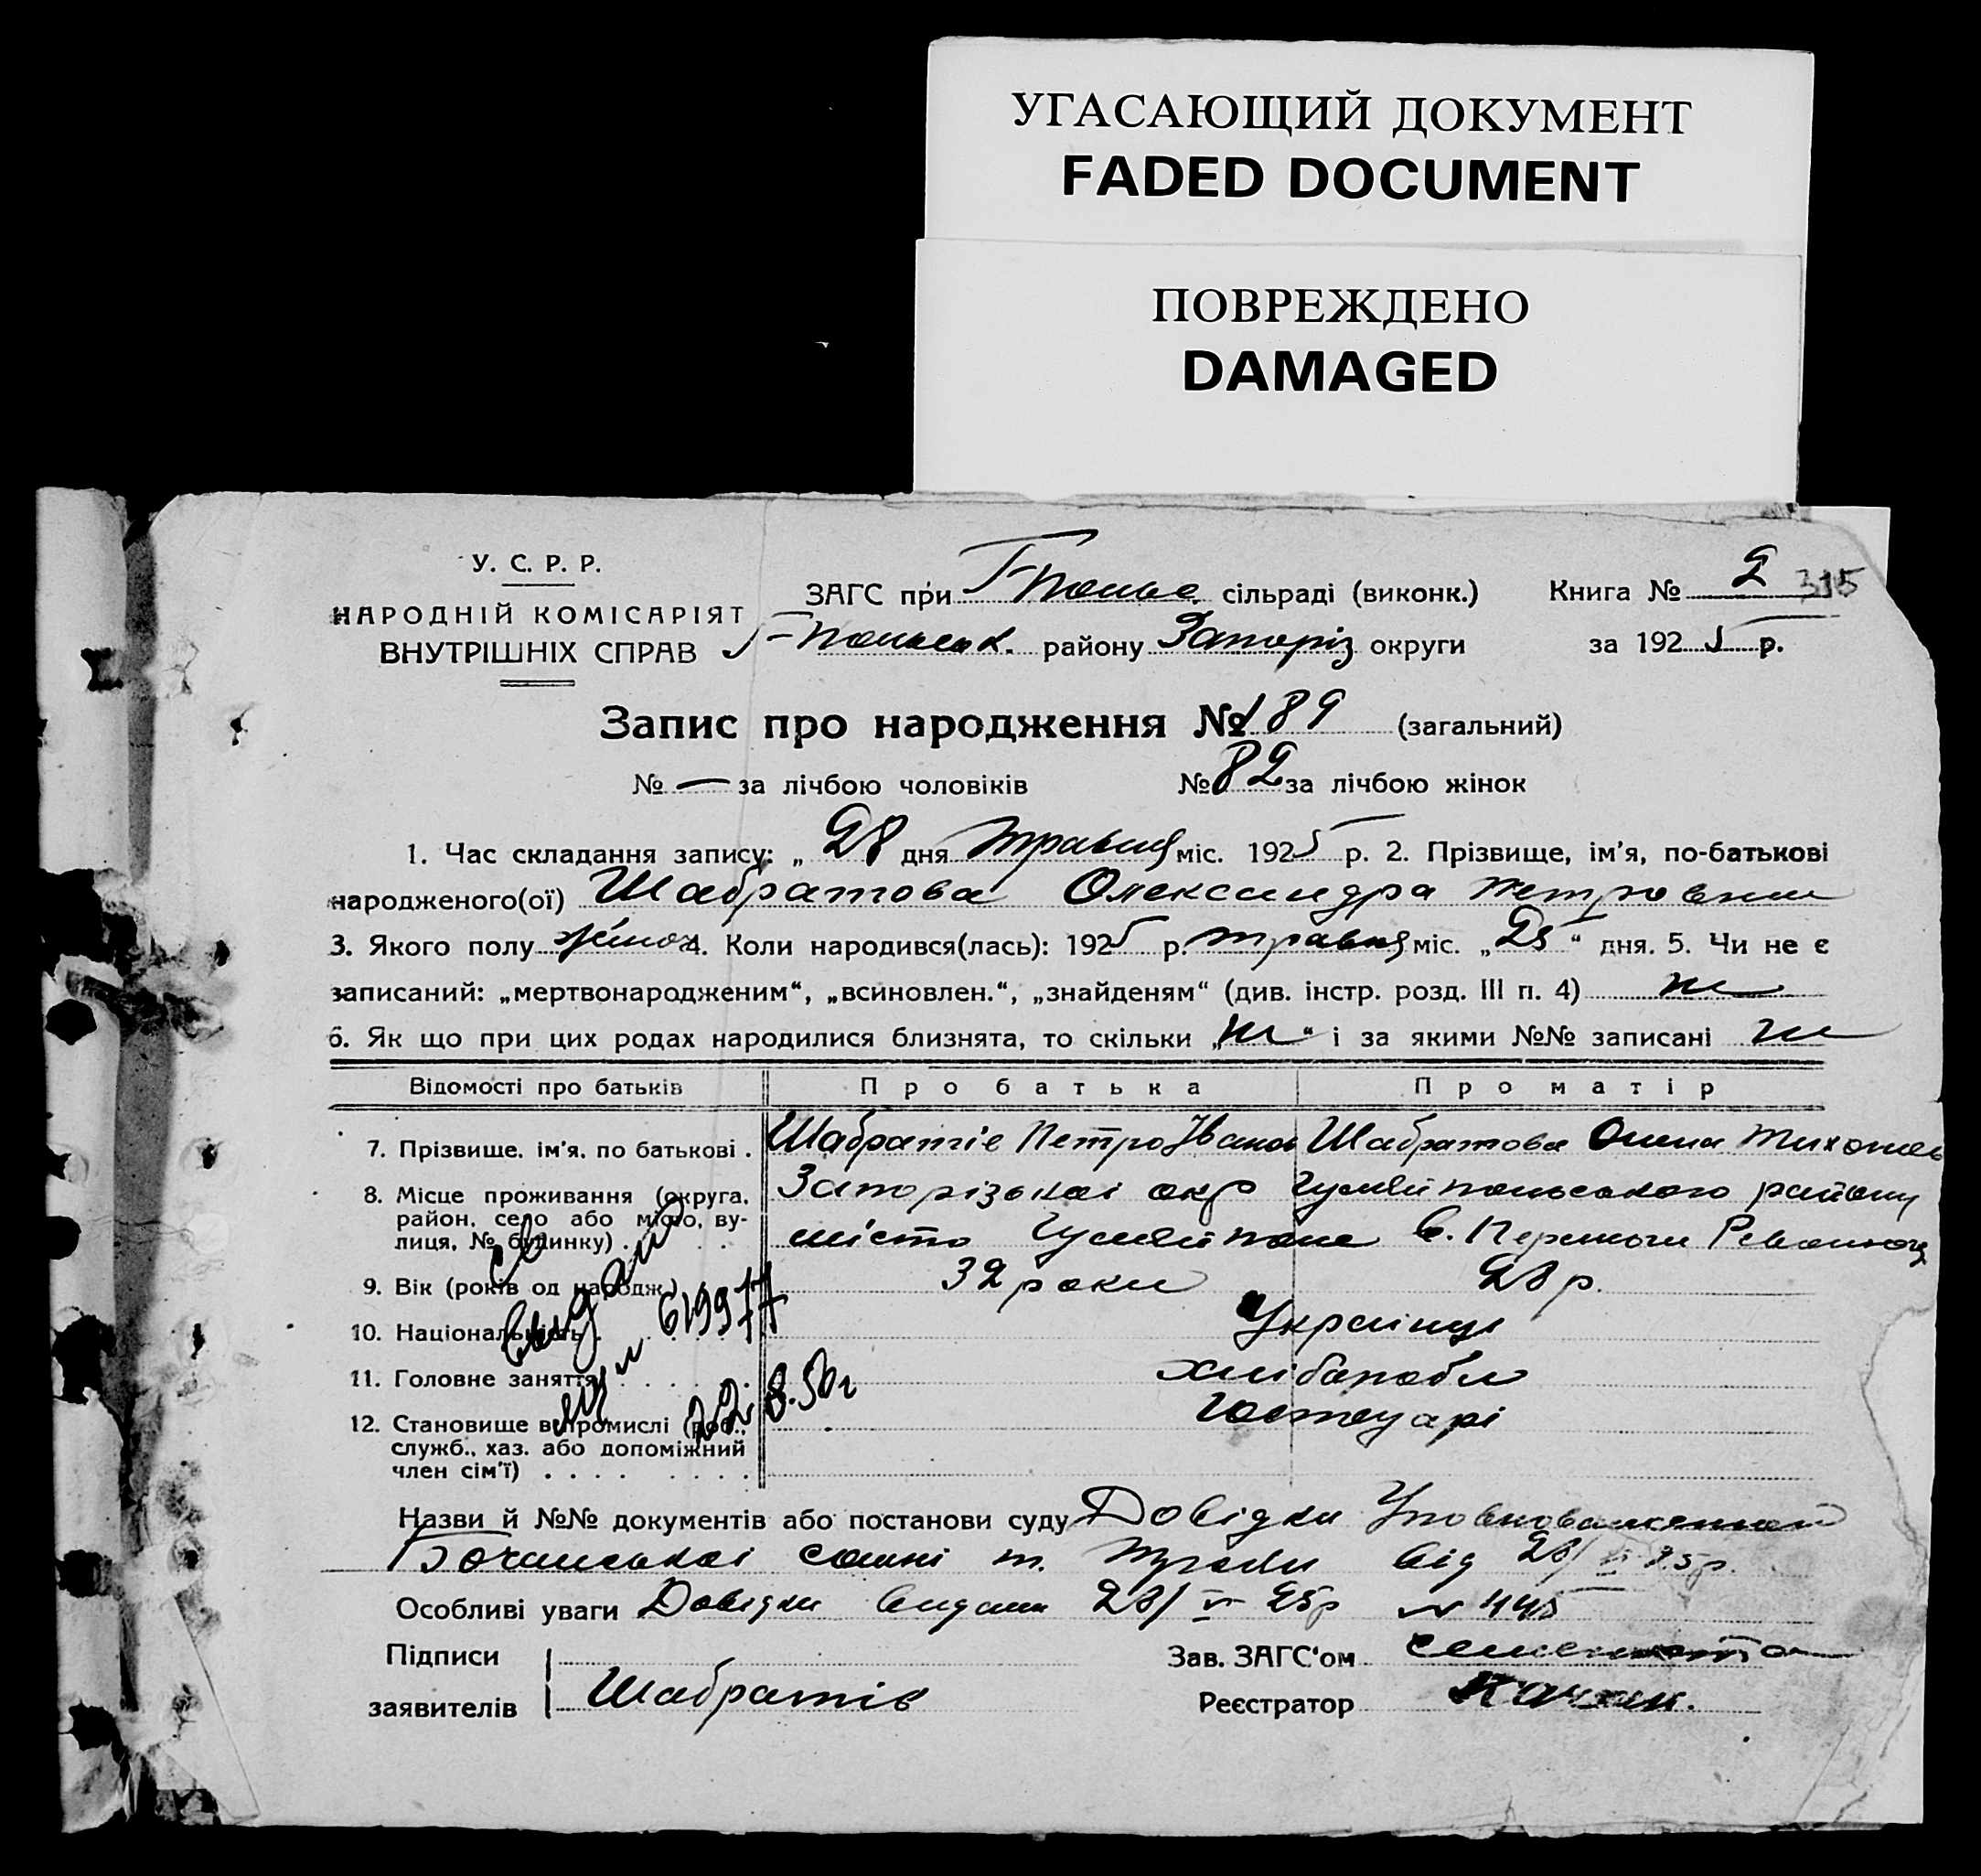 УГАСАЮЩИЙ ДОКУМЕНТ
FADED DOCUMENT
ПОВРЕЖДЕНО
DAMAGED
У. С. Р. Р.
НАРОДНІЙ КОМІСАРІЯТ
ВНУТРІШНІХ СПРАВ
ЗАГС при Г-Польс. сільраді (виконк.)
Г-Польськ. району Запоріз округи
Книга № 2 315
за 1925 р.
Запис про народження № 189 (загальний)
№ — за лічбою чоловіків № 82 за лічбою жінок
1. Час складання запису: „ 28 дня травня міс. 1925 р. 2. Прізвище, ім'я, по-батькові
народженого(ої) Шабратова Олександра Петровни
3. Якого полу жіноч 4. Коли народився(лась): 1925 р. травня міс. „25“ дня. 5. Чи не є
записаний: „мертвонародженим“, „всиновлен.“, „знайденям“ (див. інстр. розд. III п. 4) ні
6. Як що при цих родах народилися близнята, то скільки „ні“ і за якими №№ записані ні
Відомості про батьків Про батька Про матір
7. Прізвище, ім'я, по батькові . Шабратів Петро Іванов Шабратова Олена Тихонов
8. Місце проживання (округа, Запорізької окр Гуляйпольського району
район, село або місто, ву-
лиця, № будинку) . місто Гуляйполе в. Революції
9. Вік (років од народж.) 32 роки 28 р.
10. Національність . Українці
11. Головне заняття хлібороби
12. Становище в промислі (роб.,
служб., хаз. або допоміжний
член сім'ї)
св
видано
619977
22.8.50г
Назви й №№ документів або постанови суду Довідки Уповноваженой
Бочанської сотні т. від 28/V 25р.
Особливі уваги Довідки видани 28/V 25р № 445
Підписи
заявителів Шабратів
Зав. ЗАГС'ом
Реєстратор